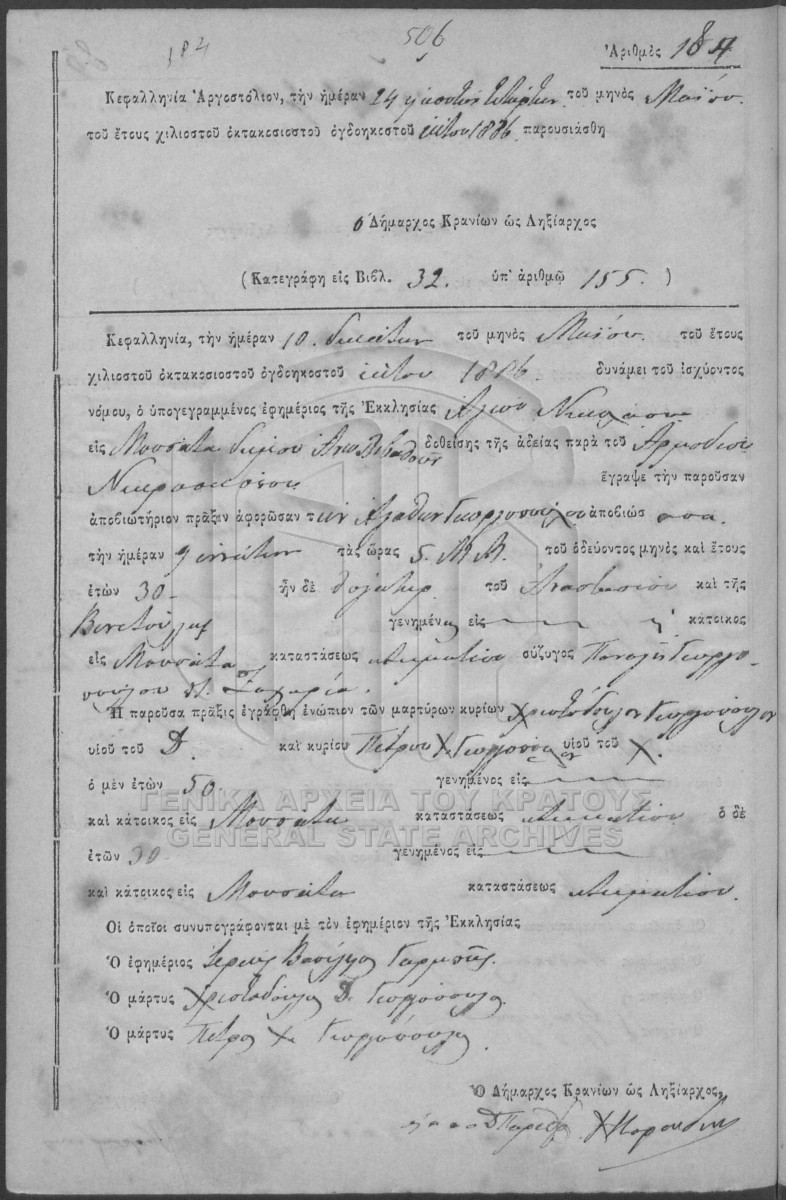 184
506
Ἀριθμὸς 184
Κεφαλληνία Ἀργοστόλιον, τὴν ἡμέραν 24 τοῦ μηνὸς Μαΐου
τοῦ ἔτους χιλιοστοῦ ὀκτακοσιοστοῦ ὀγδοηκοστοῦ ἕκτου 1886 παρουσιάσθη
ὁ Δήμαρχος Κρανίων ὡς Ληξίαρχος
(Κατεγράφη εἰς Βιβλ. 32. ὑπ' ἀριθμῷ 155.)
Κεφαλληνία, τὴν ἡμέραν 10. δεκάτην τοῦ μηνὸς Μαΐου τοῦ ἔτους
χιλιοστοῦ ὀκτακοσιοστοῦ ὀγδοηκοστοῦ ἕκτου 1886. δυνάμει τοῦ ἰσχύοντος
νόμου, ὁ ὑπογεγραμμένος ἐφημέριος τῆς Ἐκκλησίας Ἁγίου Νικολάου
εἰς Μουσάτα δήμου δοθείσης τῆς ἀδείας παρὰ τοῦ
ἔγραψε τὴν παροῦσαν
ἀποβιωτήριον πρᾶξιν ἀφορῶσαν τὴν Γεωργοπούλου ἀποβιώσασα
τὴν ἡμέραν 9 ἐννάτην τὰς ὥρας 5. Μ.Μ. τοῦ ὁδεύοντος μηνὸς καὶ ἔτους
ἐτῶν 30 ἦν δὲ θυγάτηρ τοῦ Ἀναστασίου καὶ τῆς
Βενετούλας γενημένη εἰς κάτοικος
εἰς Μουσάτα καταστάσεως κτηματίου σύζυγος Παναγῆ Γεωργο-
πούλου Ζαχαρία.
Ἡ παροῦσα πρᾶξις ἐγράφθη ἐνώπιον τῶν μαρτύρων κυρίων Χριστοδούλου Γεωργοπούλου
υἱοῦ τοῦ Δ. καὶ κυρίου Πέτρου Χ. Γεωργοπούλου υἱοῦ τοῦ Χ.
ὁ μὲν ἐτῶν 50 γενημένος εἰς
καὶ κάτοικος εἰς Μουσάτα καταστάσεως κτηματίου ὁ δὲ
ἐτῶν 30 γενημένος εἰς
καὶ κάτοικος εἰς Μουσάτα καταστάσεως κτηματίου.
Οἱ ὁποῖοι συνυπογράφονται μὲ τὸν ἐφημέριον τῆς Ἐκκλησίας
Ὁ ἐφημέριος Ἱερεὺς Βασίλειος
Ὁ μάρτυς Χριστόδουλος Δ. Γεωργόπουλος
Ὁ μάρτυς Πέτρος Χ. Γεωργόπουλος
Ὁ Δήμαρχος Κρανίων ὡς Ληξίαρχος,
ΓΕΝΙΚΑ ΑΡΧΕΙΑ ΤΟΥ ΚΡΑΤΟΥΣ
GENERAL STATE ARCHIVES